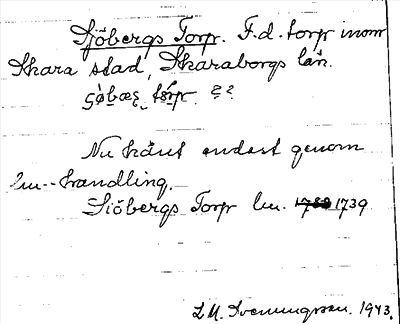 Sjöbergs Torp. F.d. torp inom
Skara stad, Skaraborgs län.
Nu känt endast genom
lm-handling.
Siöbergs Torp lm. 1739
L M. Svenungsson. 1943.